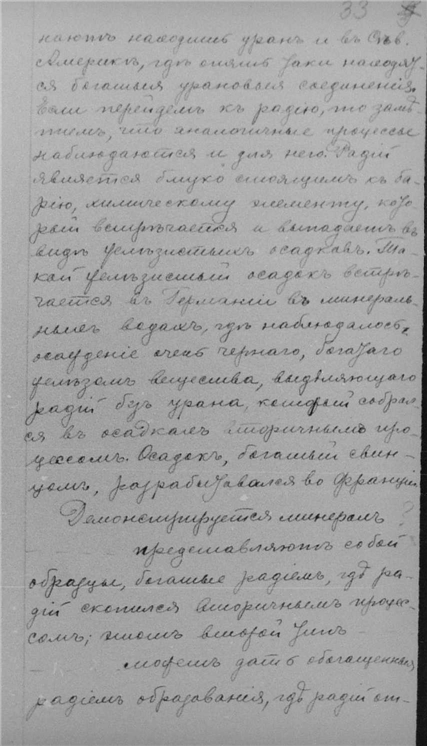 33
нают находить уран и в Сѣв.
Америкѣ, гдѣ опять таки находят
ся богатыя урановыя соединенія.
Если перейдемъ къ радію, то замѣ-
тимъ, что аналогичные процессы
наблюдаются и для него. Радій
является близко стоящимъ къ ба-
рію, химическому элементу, кото
рый встрѣчается и выпадаетъ въ
видѣ желѣзистыхъ осадковъ. Та-
кой желѣзистый осадокъ встрѣ-
чается въ Германіи въ минераль-
ныхъ водахъ, гдѣ наблюдалось
осажденіе чернаго, богатаго
желѣзомъ вещества, выдѣляющаго
радій безъ урана, который собрал-
ся въ осадкахъ вторичнымъ про-
цессомъ. Осадокъ, богатый свин-
цомъ, разрабатывался во Франціи
Демонстрируется минералъ ?
представляютъ собой
образцы, богатые радіемъ, гдѣ ра-
дій скопился вторичнымъ процес-
сомъ; этотъ второй типъ
можетъ дать обогащенныя
радіемъ образованія, гдѣ радій от-